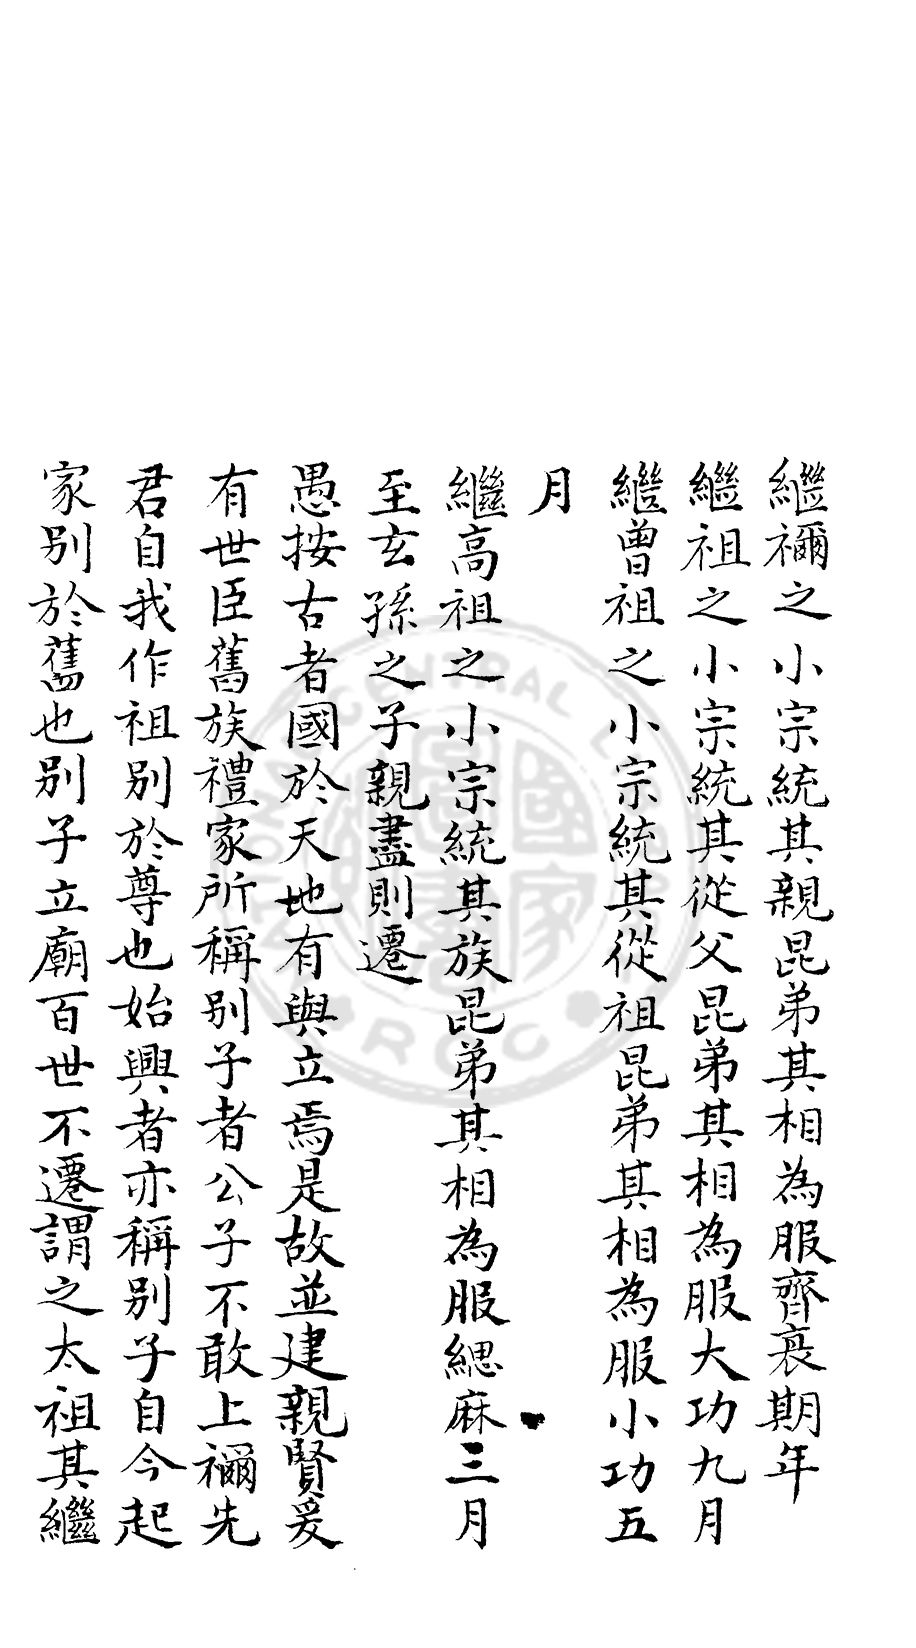 繼禰之小宗統其親昆弟其相為服齊衰期年
繼祖之小宗統其從父昆弟其相為服大功九月
繼曾祖之小宗統其從祖昆弟其相為服小功五
月
繼高祖之小宗統其族昆弟其相為服緦麻三月
至玄孫之子親盡則遷
愚按古者國於天地有與立焉是故並建親賢爰
有世臣舊族禮家所稱別子者公子不敢上禰先
君自我作祖別於尊也始興者亦稱別子自今起
家別於舊也別子立廟百世不遷謂之太祖其繼